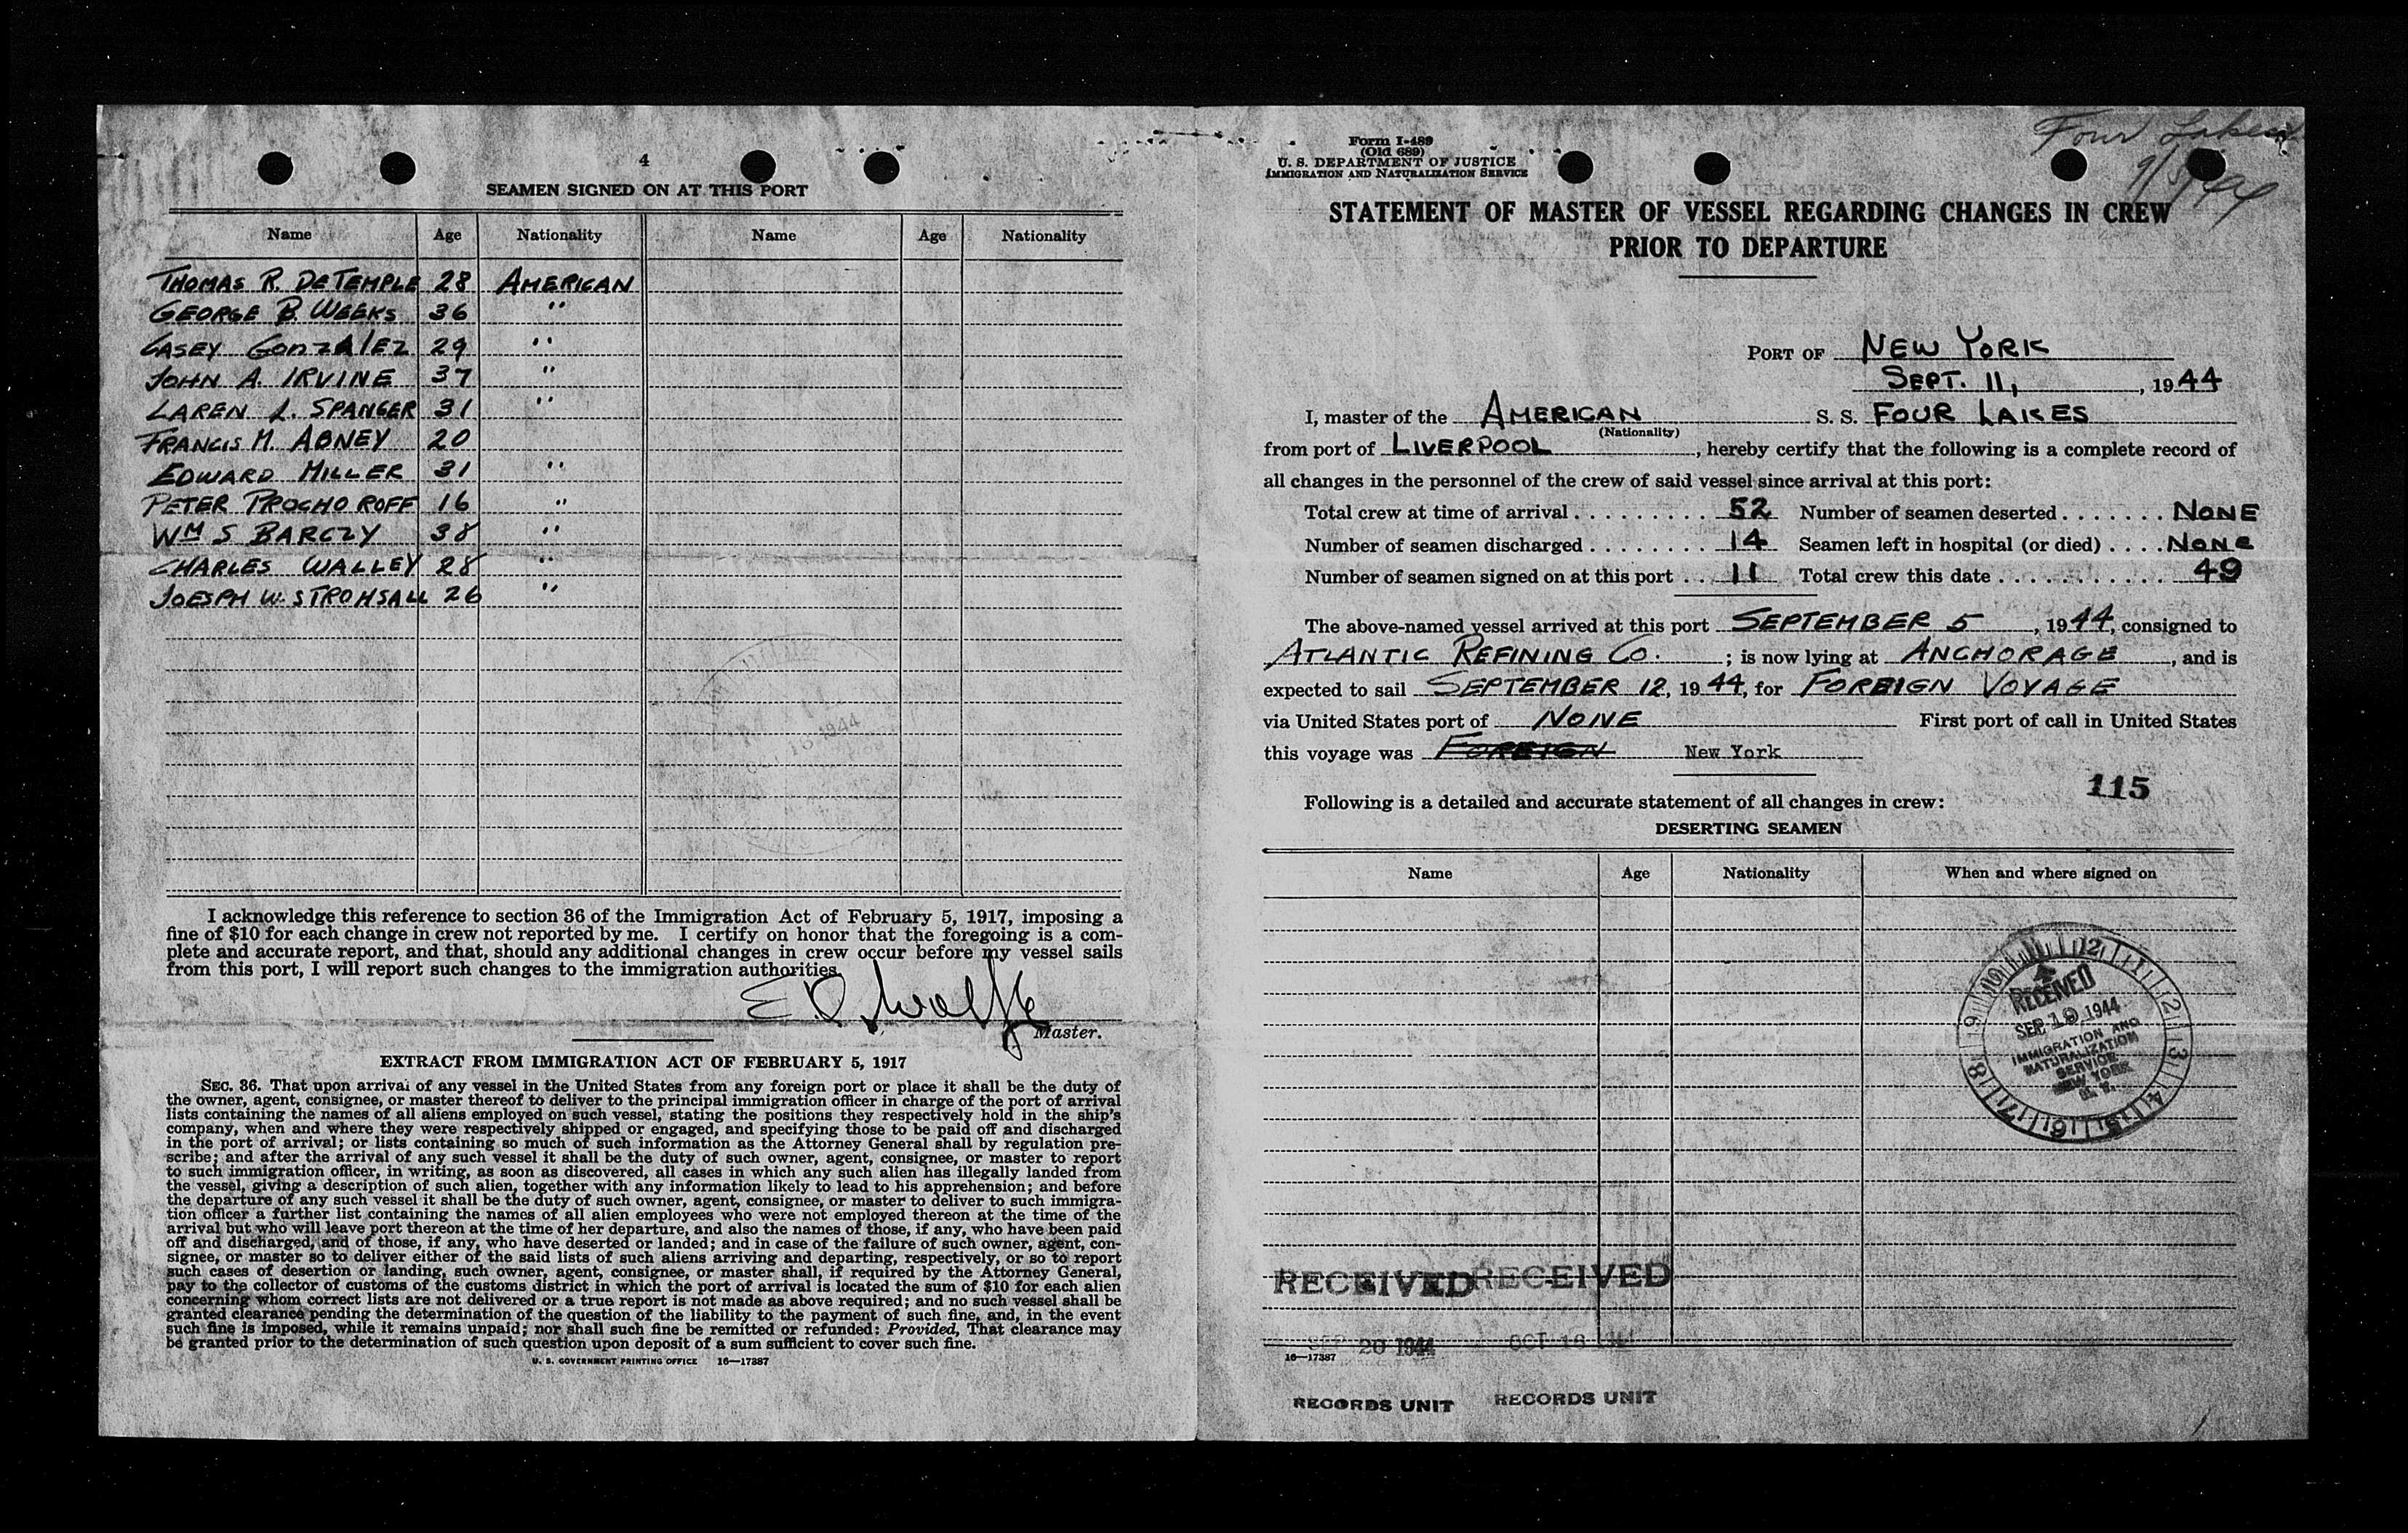 4
SEAMEN SIGNED ON AT THIS PORT
Name Age Nationality Name Age Nationality
THOMAS R. DETEMPLE 28 AMERICAN
GEORGE B. WEEKS 36 "
CASEY GONZALEZ 29 "
JOHN A. IRVINE 37 "
LAREN L. SPANGER 31 "
FRANCIS M. ABNEY 20
EDWARD MILLER 31 "
PETER PROCHOROFF 16 "
WM S BARCZY 38 "
CHARLES WALLEY 28 "
JOESPH W. STROHSALL 26 "
I acknowledge this reference to section 36 of the Immigration Act of February 5, 1917, imposing a
fine of $10 for each change in crew not reported by me. I certify on honor that the foregoing is a com-
plete and accurate report, and that, should any additional changes in crew occur before my vessel sails
from this port, I will report such changes to the immigration authorities.
Master.
EXTRACT FROM IMMIGRATION ACT OF FEBRUARY 5, 1917
SEC. 36. That upon arrival of any vessel in the United States from any foreign port or place it shall be the duty of
the owner, agent, consignee, or master thereof to deliver to the principal immigration officer in charge of the port of arrival
lists containing the names of all aliens employed on such vessel, stating the positions they respectively hold in the ship's
company, when and where they were respectively shipped or engaged, and specifying those to be paid off and discharged
in the port of arrival; or lists containing so much of such information as the Attorney General shall by regulation pre-
scribe; and after the arrival of any such vessel it shall be the duty of such owner, agent, consignee, or master to report
to such immigration officer, in writing, as soon as discovered, all cases in which any such alien has illegally landed from
the vessel, giving a description of such alien, together with any information likely to lead to his apprehension; and before
the departure of any such vessel it shall be the duty of such owner, agent, consignee, or master to deliver to such immigra-
tion officer a further list containing the names of all alien employees who were not employed thereon at the time of the
arrival but who will leave port thereon at the time of her departure, and also the names of those, if any, who have been paid
off and discharged, and of those, if any, who have deserted or landed; and in case of the failure of such owner, agent, con-
signee, or master so to deliver either of the said lists of such aliens arriving and departing, respectively, or so to report
such cases of desertion or landing, such owner, agent, consignee, or master shall, if required by the Attorney General,
pay to the collector of customs of the customs district in which the port of arrival is located the sum of $10 for each alien
concerning whom correct lists are not delivered or a true report is not made as above required; and no such vessel shall be
granted clearance pending the determination of the question of the liability to the payment of such fine, and, in the event
such fine is imposed, while it remains unpaid; nor shall such fine be remitted or refunded: Provided, That clearance may
be granted prior to the determination of such question upon deposit of a sum sufficient to cover such fine.
U. S. GOVERNMENT PRINTING OFFICE 16—17387
Four Lakes
9/5/44
Form I-489
(Old 689)
U. S. DEPARTMENT OF JUSTICE
IMMIGRATION AND NATURALIZATION SERVICE
STATEMENT OF MASTER OF VESSEL REGARDING CHANGES IN CREW
PRIOR TO DEPARTURE
PORT OF NEW YORK
SEPT. 11, 1944
I, master of the AMERICAN S. S. FOUR LAKES
(Nationality)
from port of LIVERPOOL, hereby certify that the following is a complete record of
all changes in the personnel of the crew of said vessel since arrival at this port:
Total crew at time of arrival . . . . . . . . . . 52 Number of seamen deserted . . . . . . . NONE
Number of seamen discharged . . . . . . . . 14 Seamen left in hospital (or died) . . . . NONE
Number of seamen signed on at this port . . 11 Total crew this date . . . . . . . . . . . . 49
The above-named vessel arrived at this port SEPTEMBER 5, 1944, consigned to
ATLANTIC REFINING CO. ; is now lying at ANCHORAGE, and is
expected to sail SEPTEMBER 12, 1944, for FOREIGN VOYAGE
via United States port of NONE First port of call in United States
this voyage was FOREIGN New York
115
Following is a detailed and accurate statement of all changes in crew:
DESERTING SEAMEN
Name Age Nationality When and where signed on
RECEIVED
SEP 19 1944
IMMIGRATION AND
NATURALIZATION
SERVICE
NEW YORK
N. Y.
RECEIVED RECEIVED
SEP 20 1944 OCT 16
16—17387
RECORDS UNIT RECORDS UNIT